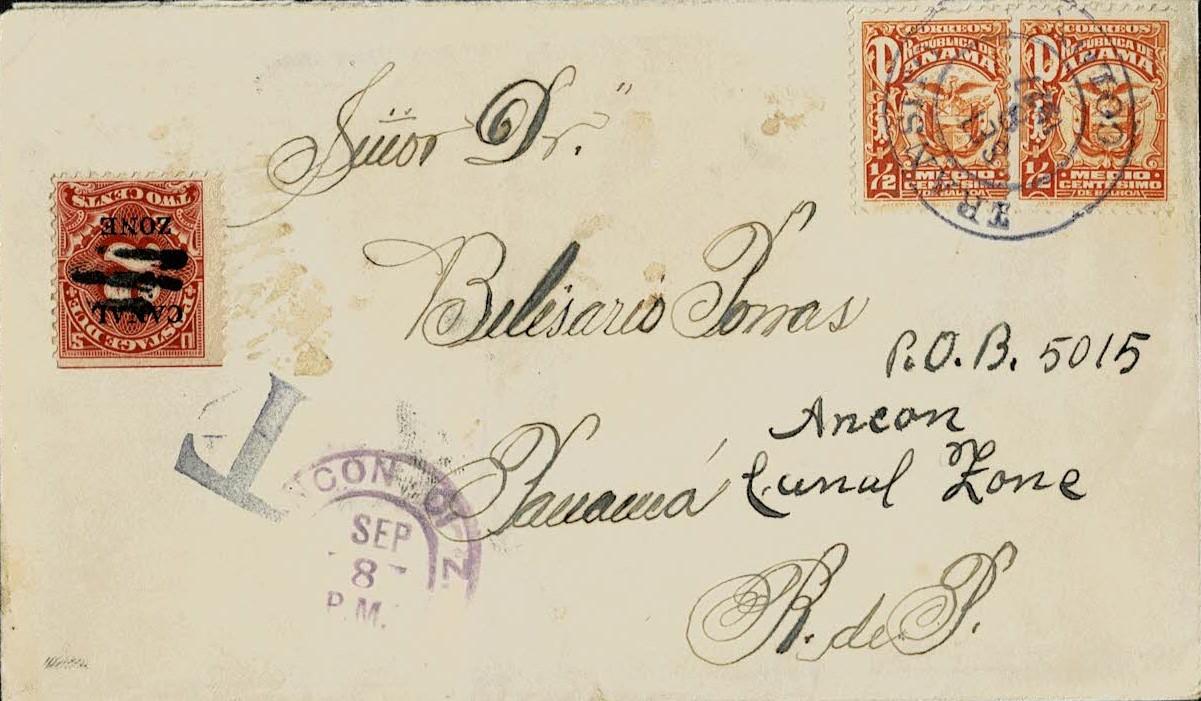 CORREOS
REPÚBLICA DE
PANAMA
1/2
MEDIO
CENTÉSIMO
DE BALBOA
CORREOS
REPÚBLICA DE
PANAMA
1/2
MEDIO
CENTÉSIMO
DE BALBOA
Señor Dr.
Belisario Porras
P.O.B. 5015
Ancon
Canal Zone
Panamá
R. de P.
U.S.
POSTAGE DUE
CANAL
ZONE
TWO CENTS
T
ANCON CANAL Z
SEP
8
P.M.